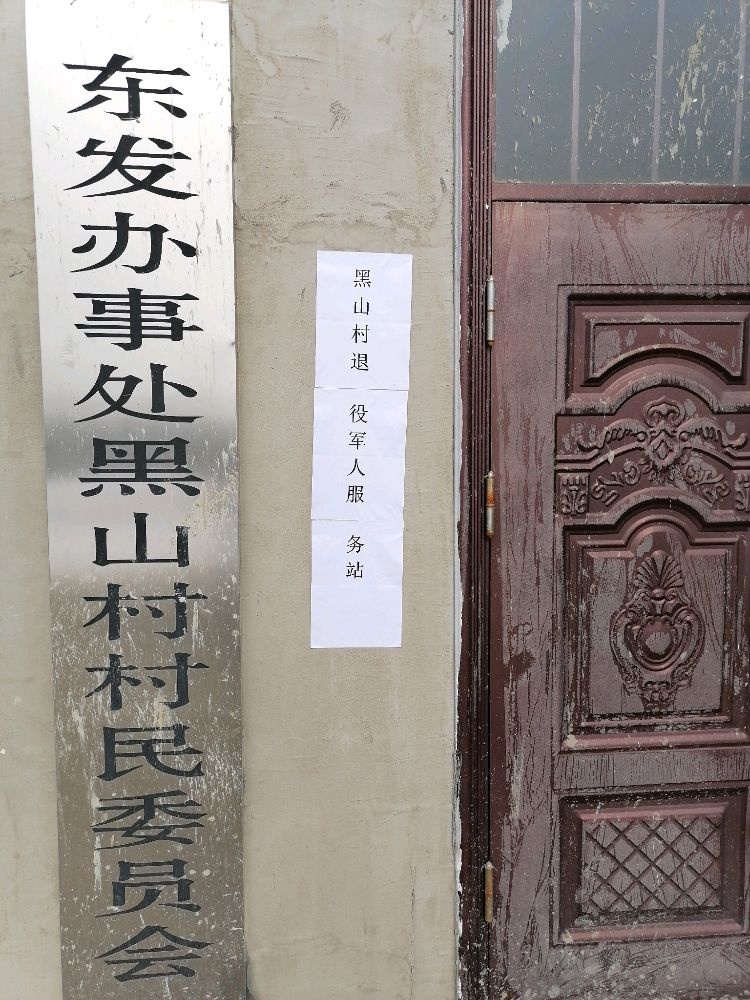 东发办事处黑山村村民委员会
黑山村退役军人服务站